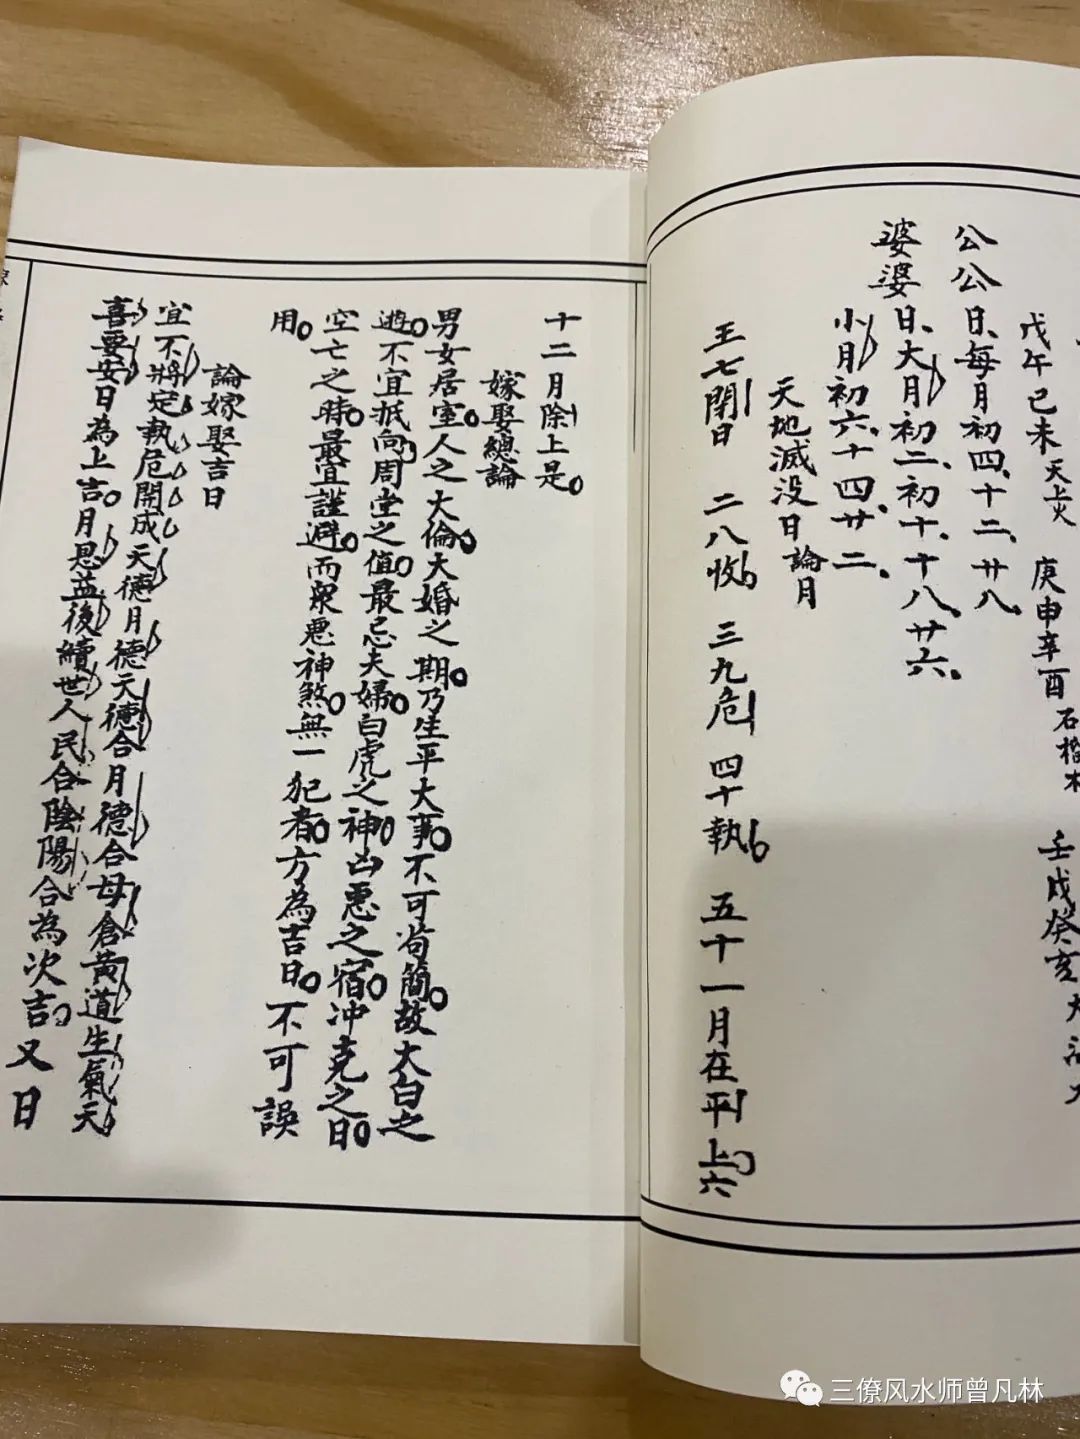 戊午己未天上火 庚申辛酉石榴木 壬戌癸亥大海
公公日、每月初四、十二、廿八、
婆婆日、大月初二、初十、十八、廿六、
小月初六、十四、廿二、
天地滅没日論月
王七閉日 二八收 三九危 四十執 五十一月在平上六
十二月除上是。
嫁娶總論
男女居室。人之大倫。大婚之期。乃生平大事。不可苟簡。故大白之
遊。不宜抵向。周堂之值。最忌夫婦。白虎之神。凶惡之宿。冲克之日。
空亡之時。最宜謹避。而衆惡神煞。無一犯者。方為吉日。不可誤
用。
論嫁娶吉日
宜不將定執危開成天德月德天德合月德合母倉黃道生氣天
喜要安日為上吉。月恩益後續世人民合陰陽合為次吉。又日
三僚风水师曾凡林